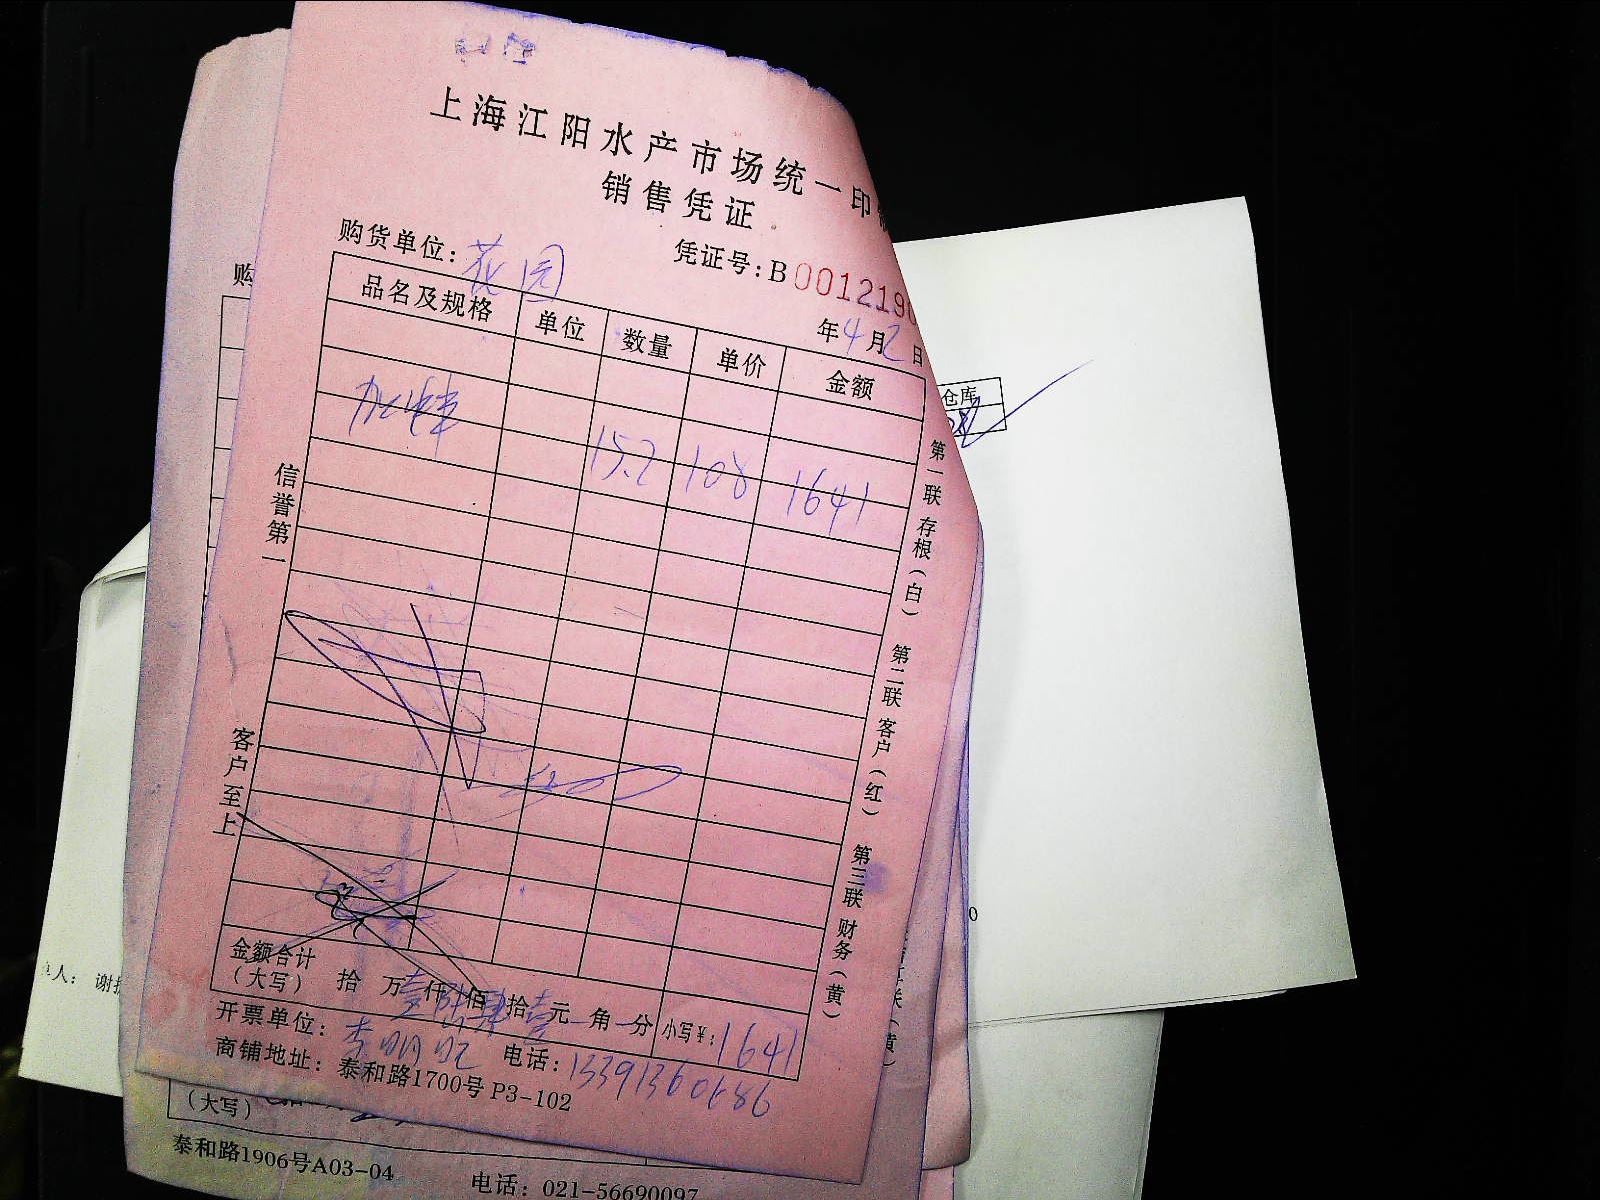 上海江阳水产市场统一印
销售凭证
购货单位：花园
凭证号：B 001219
年4月2日
品名及规格 单位 数量 单价 金额
15.2 108 1641
信誉第一
客户至上
第一联 存根（白） 第二联 客户（红） 第三联 财务（黄）
金额合计（大写） 拾 万壹仟陆佰肆拾壹元 角 分 小写￥：1641
开票单位： 电话：
商铺地址：泰和路1700号 P3-102
仓库
购
（大写）
泰和路1906号A03-04
电话：021-56690097